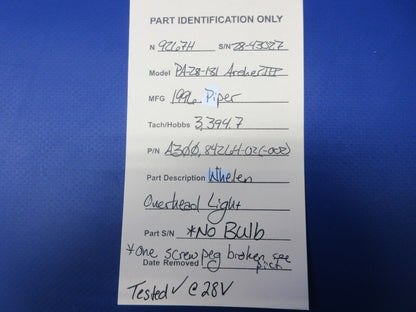 PART IDENTIFICATION ONLY
N 9267H S/N 28-43027
Model PA-28-181 Archer III
MFG 1996 Piper
Tach/Hobbs 3,394.7
P/N A300, 84264-02 (-002)
Part Description Whelen
Overhead Light
Part S/N *No Bulb
*One screw peg broken see
Date Removed pics
Tested ✓ @ 28V